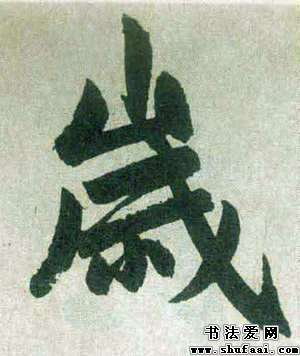 歳
书法爱网
www.shufaai.com